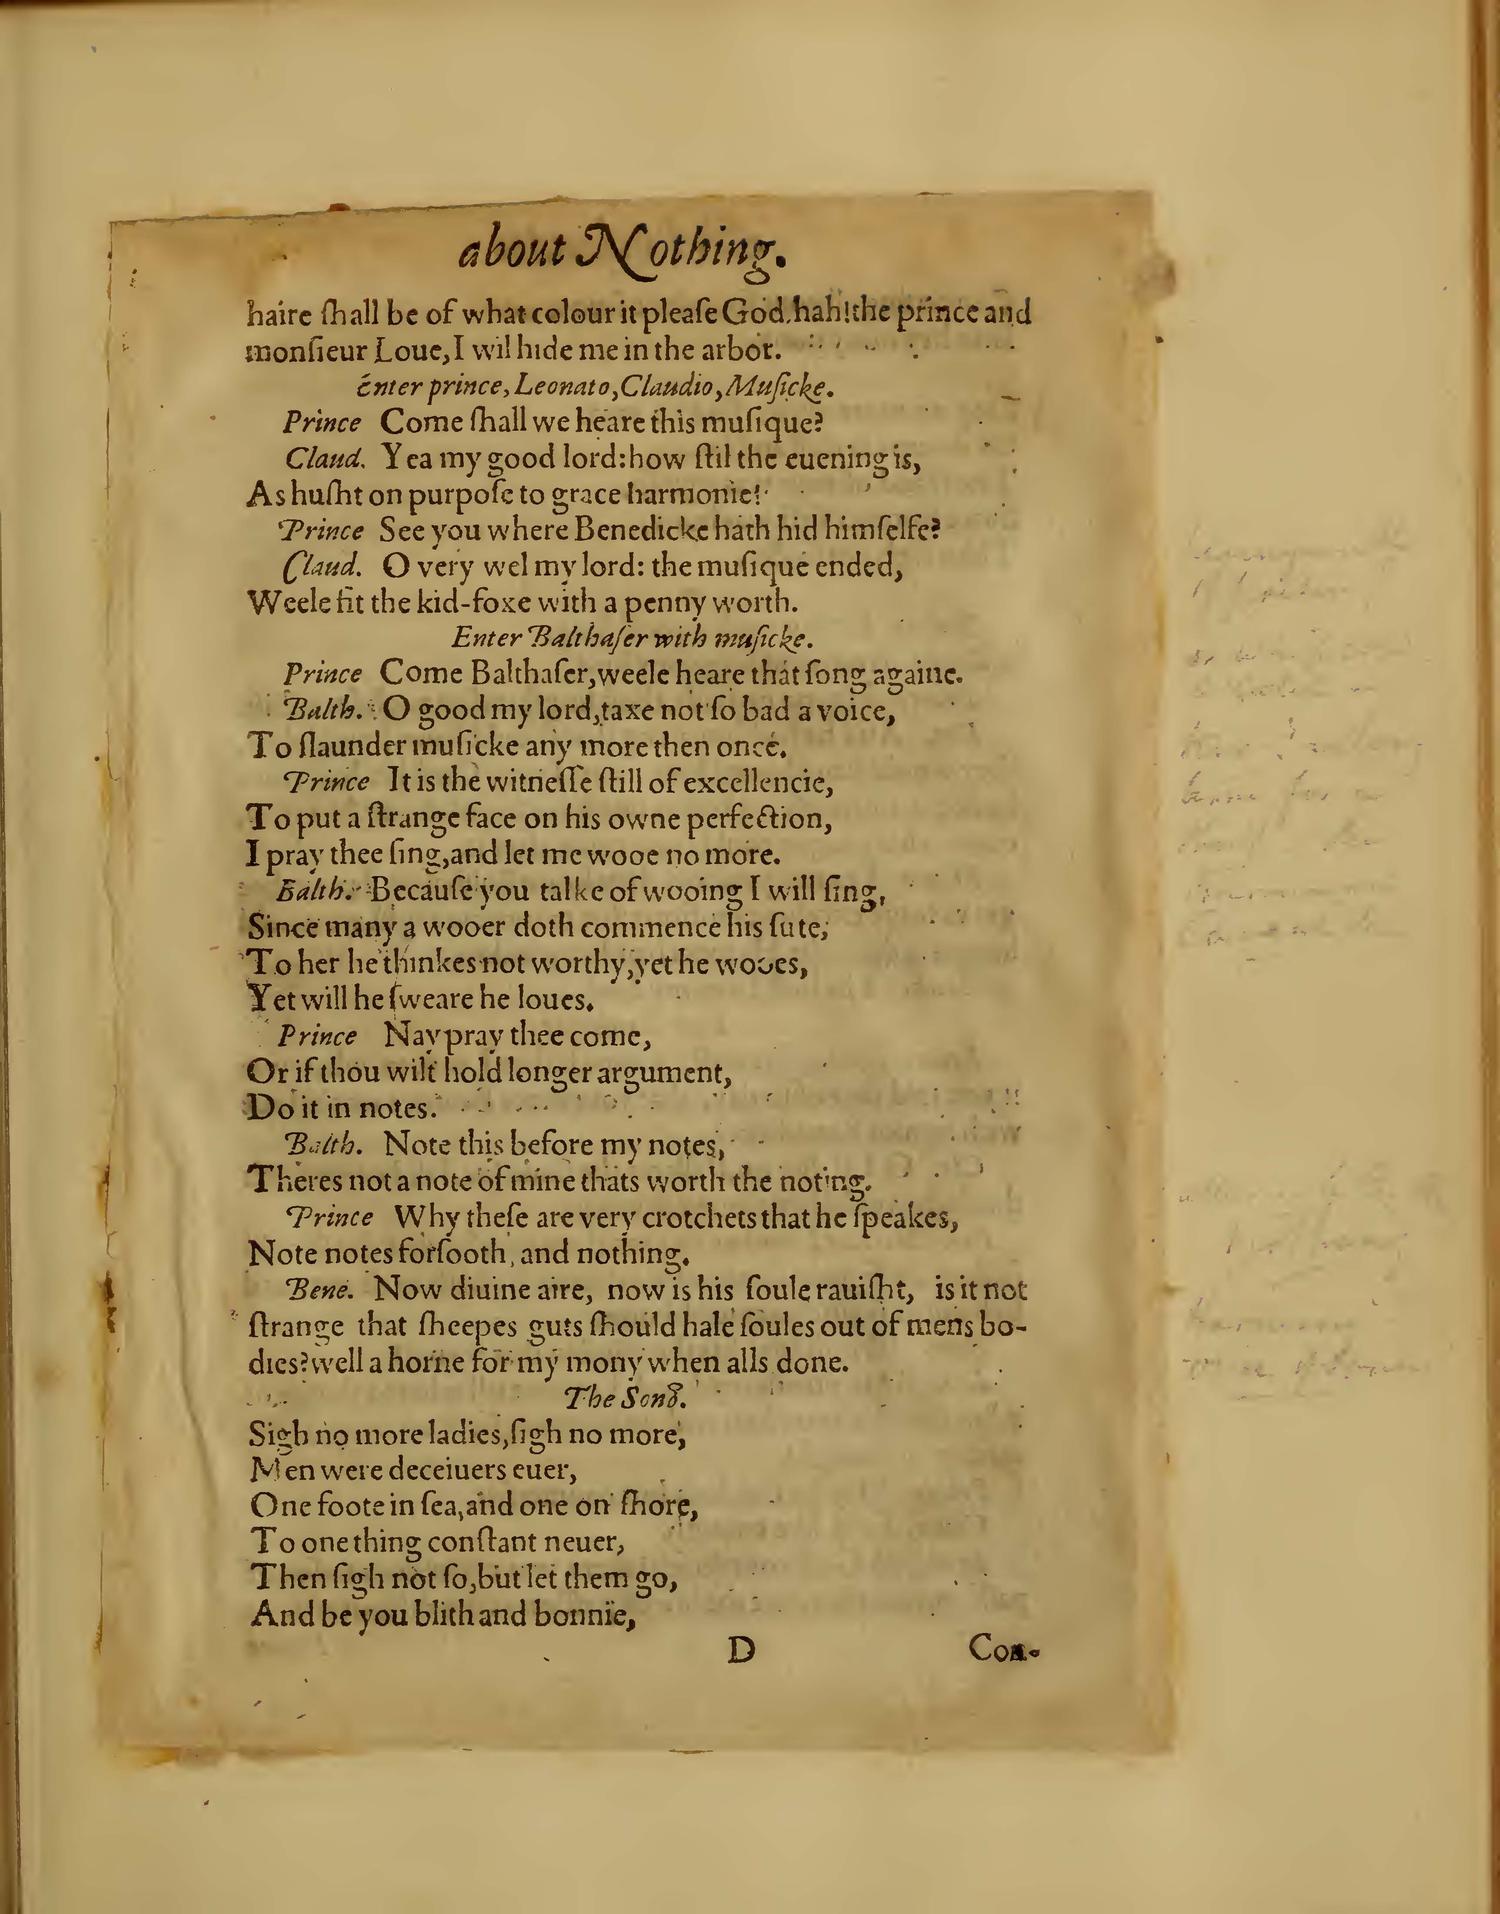 about Nothing.
haire ſhall be of what colour it pleaſe God. hah! the prince and
monſieur Loue, I wil hide me in the arbor.
Enter prince, Leonato, Claudio, Muſicke.
Prince Come ſhall we heare this muſique?
Claud. Yea my good lord: how ſtil the euening is,
As huſht on purpoſe to grace harmonie!
Prince See you where Benedicke hath hid himſelfe?
Claud. O very wel my lord: the muſique ended,
Weele fit the kid-foxe with a penny worth.
Enter Balthaſer with muſicke.
Prince Come Balthaſer, weele heare that ſong againe.
Balth. O good my lord, taxe not ſo bad a voice,
To ſlaunder muſicke any more then once.
Prince It is the witneſſe ſtill of excellencie,
To put a ſtrange face on his owne perfection,
I pray thee ſing, and let me wooe no more.
Balth. Becauſe you talke of wooing I will ſing,
Since many a wooer doth commence his ſute,
To her he thinkes not worthy, yet he wooes,
Yet will he ſweare he loues.
Prince Nay pray thee come,
Or if thou wilt hold longer argument,
Do it in notes.
Balth. Note this before my notes,
Theres not a note of mine thats worth the noting.
Prince Why theſe are very crotchets that he ſpeakes,
Note notes forſooth, and nothing.
Bene. Now diuine aire, now is his ſoule rauiſht, is it not
ſtrange that ſheepes guts ſhould hale ſoules out of mens bo-
dies? well a horne for my mony when alls done.
The Song.
Sigh no more ladies, ſigh no more,
Men were deceiuers euer,
One foote in ſea, and one on ſhore,
To one thing conſtant neuer,
Then ſigh not ſo, but let them go,
And be you blith and bonnie,
D Con-